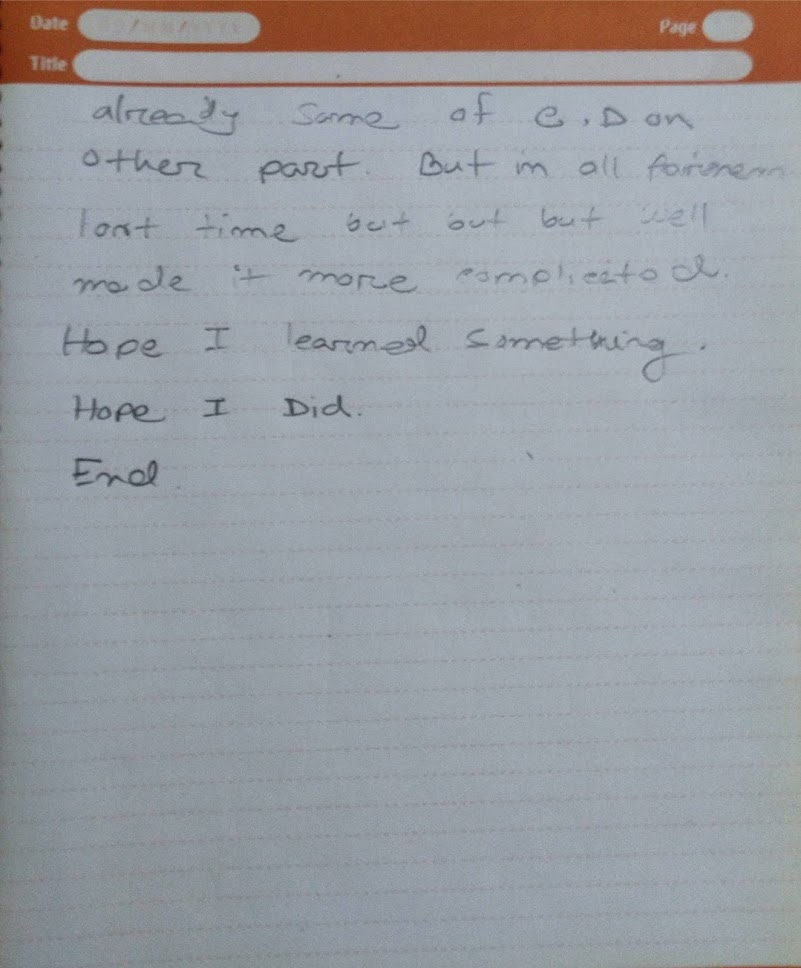 Date
Page
Title
already same of C, D on
other part. But in all fairness
lost time but but but well
made it more complicated.
Hope I learned something.
Hope I Did.
End.